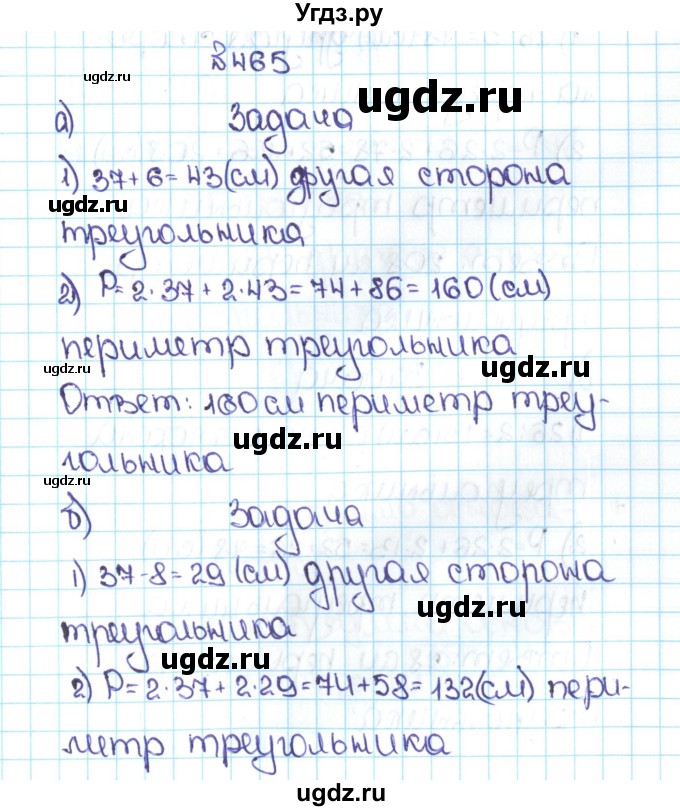 Угдз.ру
№465
ugdz.ru
ugdz.ru
а) Задача
1) 37+6=43(см) другая сторона
ugdz.ru
треугольника
2) P=2·37+2·43=74+86=160(см)
периметр треугольника
ugdz.ru
ugdz.ru
Ответ: 160см периметр треу-
ugdz.ru
гольника
ugdz.ru
б) Задача
1) 37-8=29 (см) другая сторона
ugdz.ru
треугольника
ugdz.ru
2) P=2·37+2·29=74+58=132(см) пери-
метр треугольника
ugdz.ru